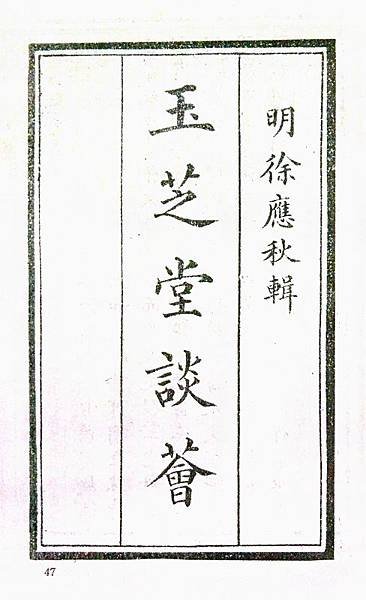 明徐應秋輯
玉芝堂談薈
47